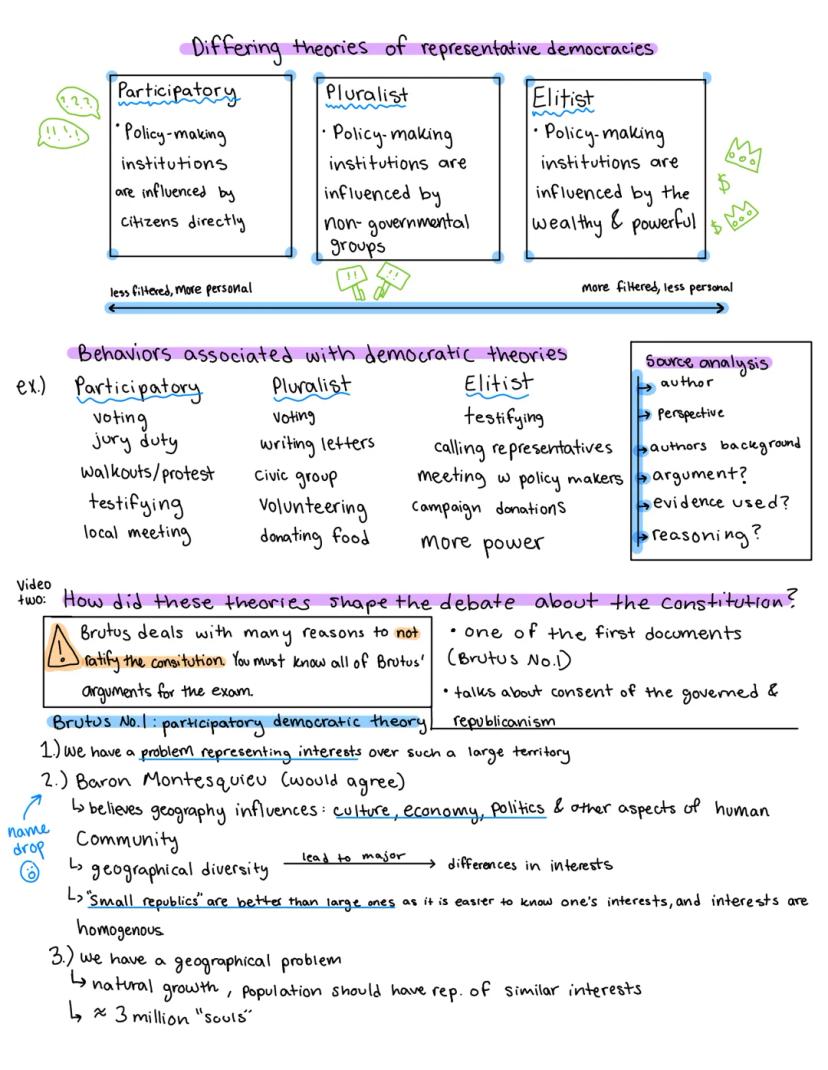 Differing theories of representative democracies
???
!!!!
Participatory
• Policy-making
institutions
are influenced by
citizens directly
Pluralist
• Policy-making
institutions are
influenced by
non-governmental
groups
Elitist
• Policy-making
institutions are
influenced by the
wealthy & powerful
$
$
!!
!!
less filtered, more personal
more filtered, less personal
Behaviors associated with democratic theories
ex.)
Participatory
voting
jury duty
walkouts/protest
testifying
local meeting
Pluralist
voting
writing letters
civic group
volunteering
donating food
Elitist
testifying
calling representatives
meeting w policy makers
campaign donations
more power
Source analysis
→ author
→ perspective
→ authors background
→ argument?
→ evidence used?
→ reasoning?
Video
two:
How did these theories shape the debate about the constitution?
! Brutus deals with many reasons to not
ratify the consitution. You must know all of Brutus'
arguments for the exam.
• one of the first documents
(Brutus No.1)
• talks about consent of the governed &
republicanism
Brutus No.1: participatory democratic theory
1.) we have a problem representing interests over such a large territory
2.) Baron Montesquieu (would agree)
↳ believes geography influences: culture, economy, politics & other aspects of human
community
name
drop
↳ geographical diversity lead to major → differences in interests
↳ "small republics" are better than large ones as it is easier to know one's interests, and interests are
homogenous
3.) we have a geographical problem
↳ natural growth, population should have rep. of similar interests
↳ ≈ 3 million "souls"